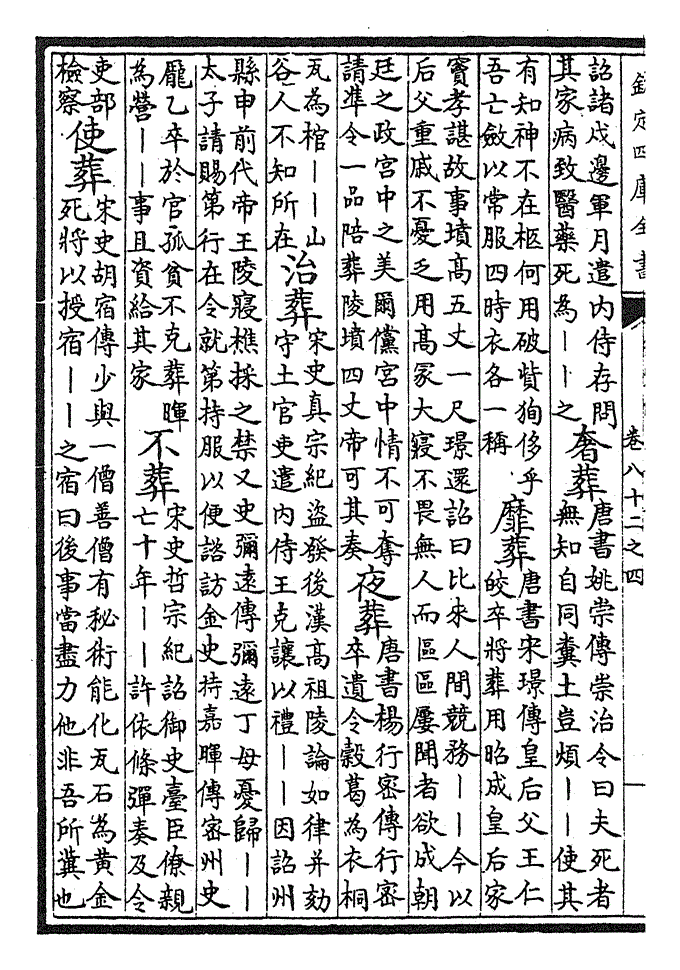 欽定四庫全書
卷八十二之四
一
詔諸戍邊軍月遣内侍存問
其家病致醫藥死為丨丨之
奢葬
唐書姚崇傳崇治令曰夫死者
無知自同糞土豈煩丨丨使其
有知神不在柩何用破貲狥侈乎
吾亡斂以常服四時衣各一稱
靡葬
唐書宋璟傳皇后父王仁
皎卒將葬用昭成皇后家
竇孝諶故事墳高五丈一尺璟還詔曰比來人間競務丨丨今以
后父重戚不憂乏用髙冢大寢不畏無人而區區屢聞者欲成朝
廷之政宫中之美爾儻宫中情不可奪
請準令一品陪葬陵墳四丈帝可其奏
夜葬
唐書楊行密傳行密
卒遺令穀葛為衣桐
瓦為棺丨丨山
谷人不知所在
治葬
宋史真宗紀盜發後漢髙祖陵論如律并劾
守土官吏遣内侍王克讓以禮丨丨因詔州
縣申前代帝王陵寢樵採之禁又史彌遠傳彌遠丁母憂歸丨丨
太子請賜第行在令就第持服以便諮訪金史持嘉暉傳密州史
龎乙卒於官孤貧不克葬暉
為營丨丨事且資給其家
不葬
宋史哲宗紀詔御史臺臣僚親
亡十年丨丨許依條彈奏及令
吏部
檢察
使葬
宋史胡宿傳少與一僧善僧有秘術能化瓦石為黃金
死將以授宿丨丨之宿曰後事當盡力他非吾所冀也